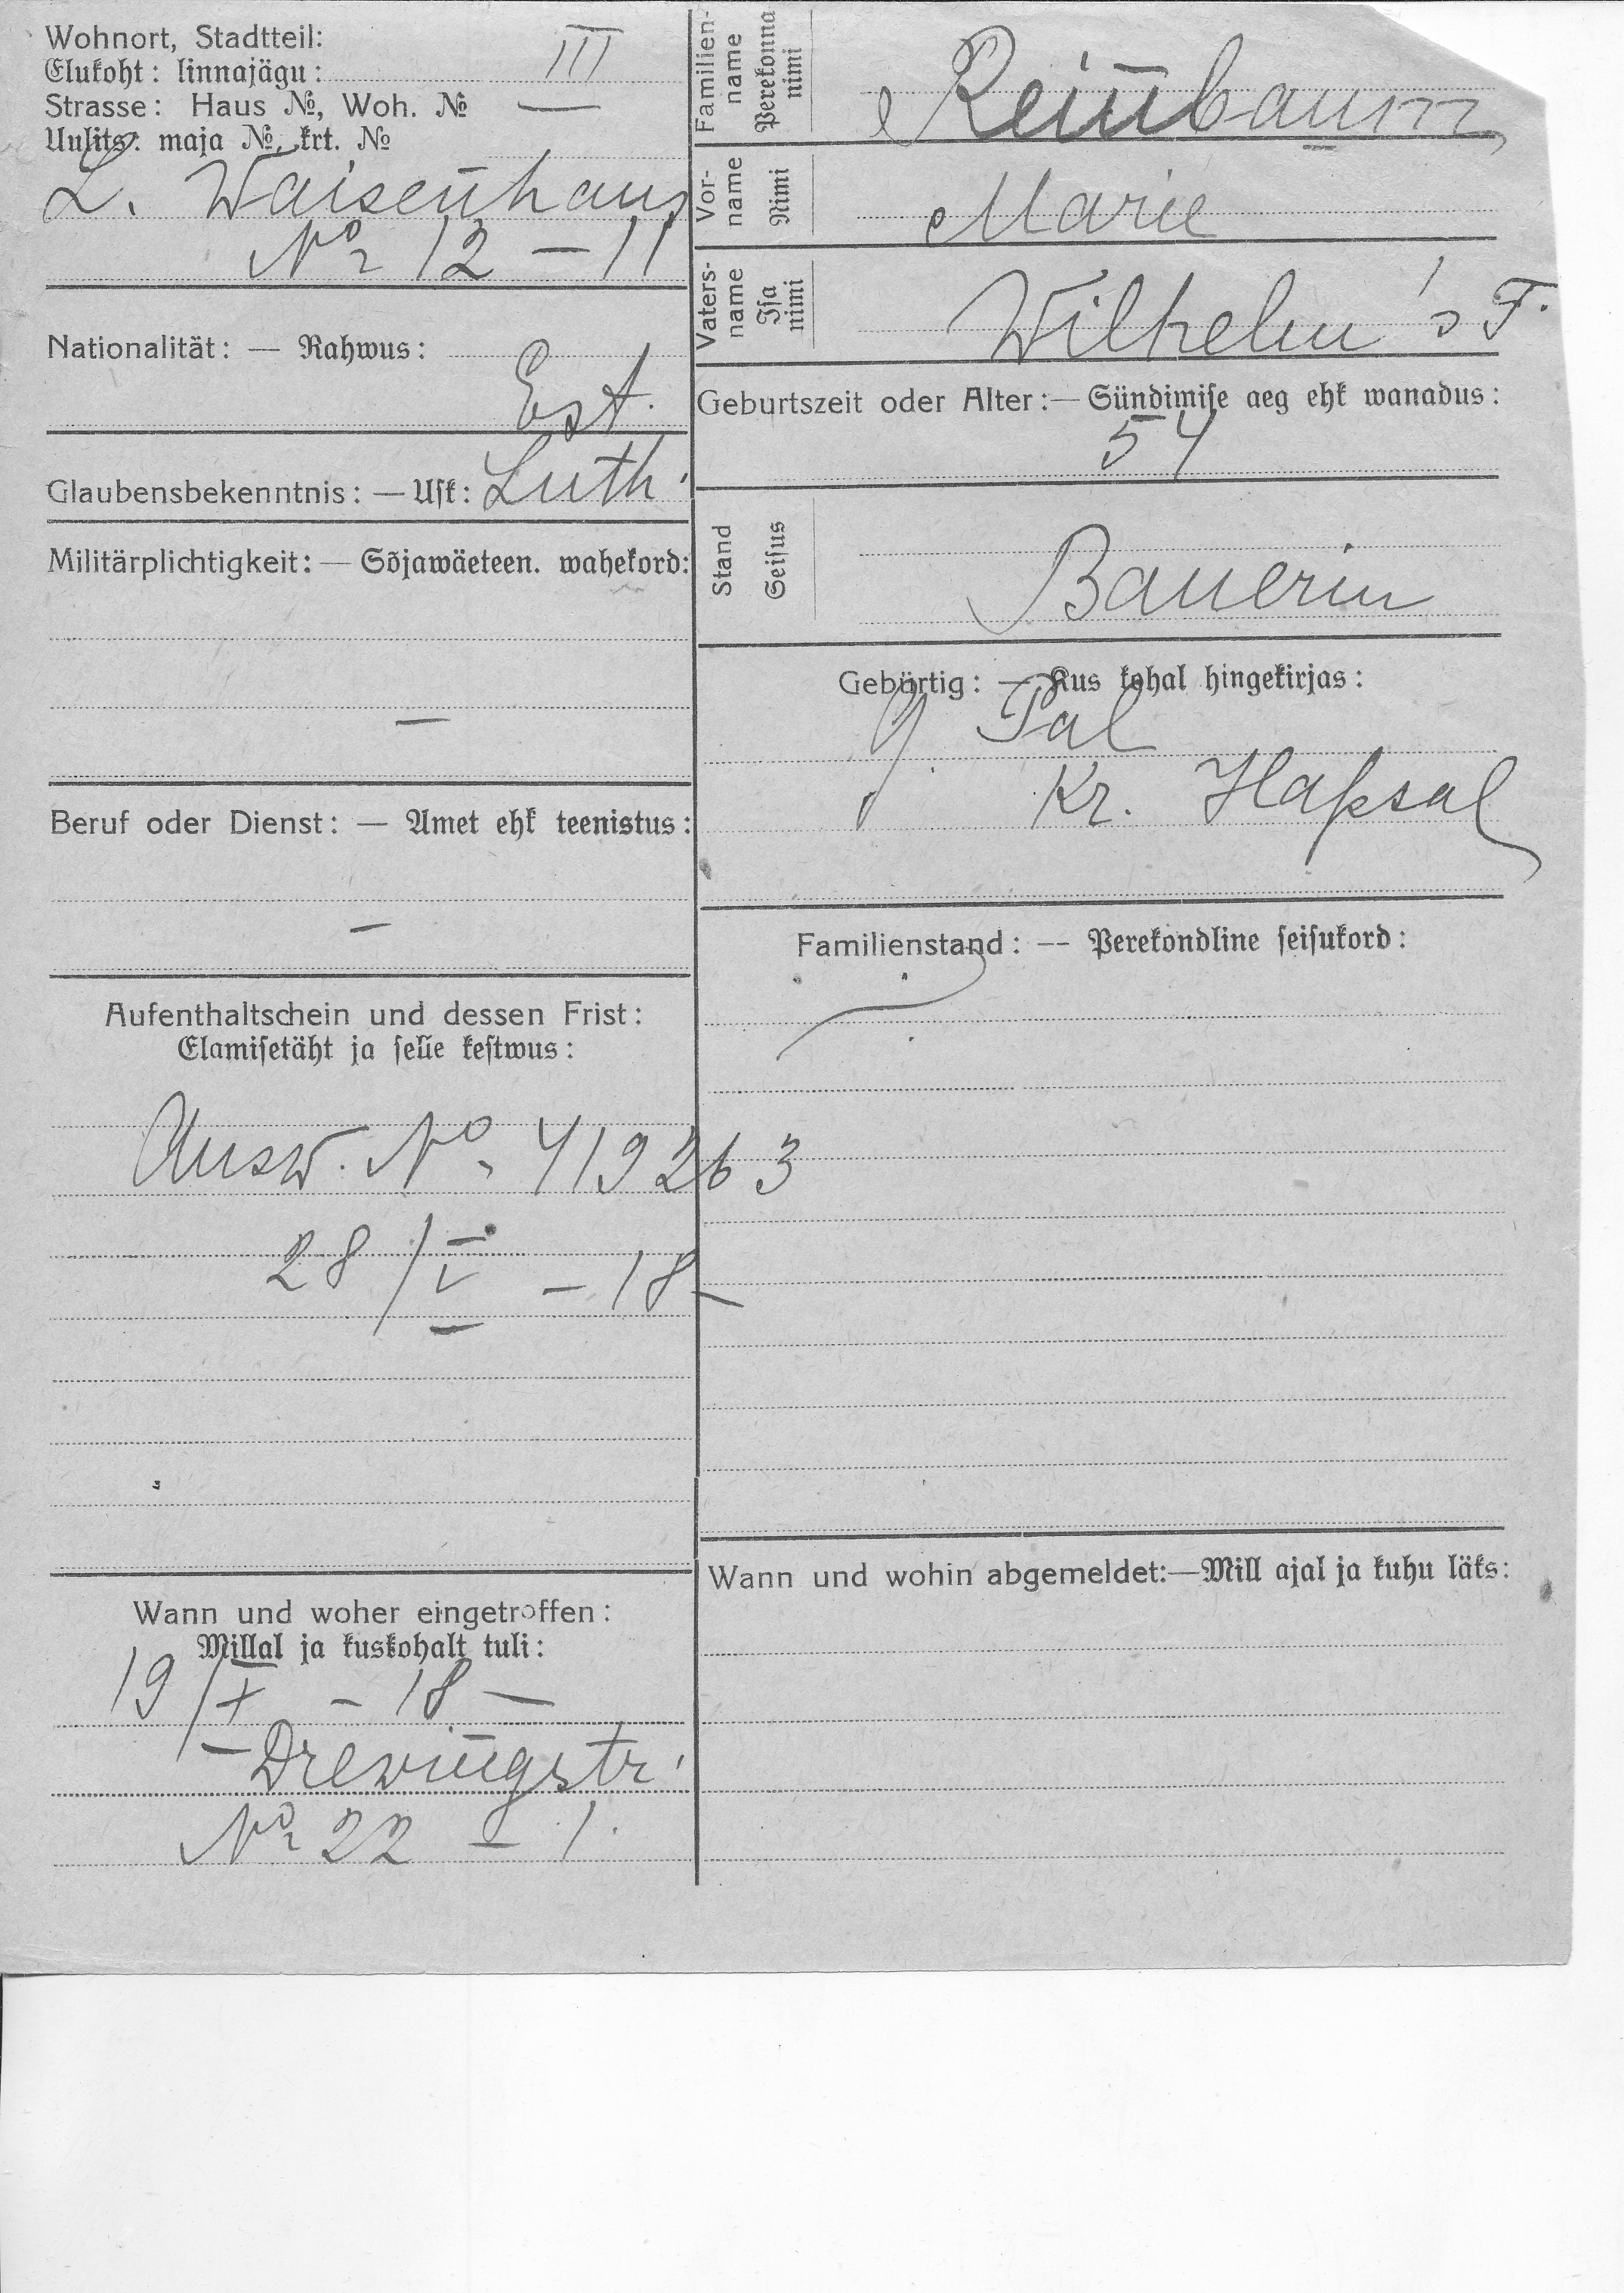 Wohnort, Stadtteil:
Elukoht: linnajägu: III
Strasse: Haus №, Woh. № —
Uulits: maja №, krt. №
L. Waisenhaus
№ 12 – 11
Nationalität: — Rahwus:
Est.
Glaubensbekenntnis: — Usk: Luth.
Militärplichtigkeit: — Sõjawäeteen. wahekord:
—
Beruf oder Dienst: — Amet ehk teenistus:
—
Aufenthaltschein und dessen Frist:
Elamisetäht ja selle kestwus:
Ausw. № 419263
28/V – 18 –
Wann und woher eingetroffen:
Millal ja kuskohalt tuli:
19/X – 18 —
Drewingstr.
№ 22 – 1.
Familien-
name
Perekonna
nimi
Reinbaum
Vor-
name
Nimi
Marie
Vaters-
name
Isa
nimi
Wilhelm's T.
Geburtszeit oder Alter: — Sündimise aeg ehk wanadus:
54
Stand
Seisus
Bauerin
Gebürtig: — Kus kohal hingekirjas:
G. Pal
Kr. Hapsal
Familienstand: — Perekondline seisukord:
Wann und wohin abgemeldet: — Mill ajal ja kuhu läks: